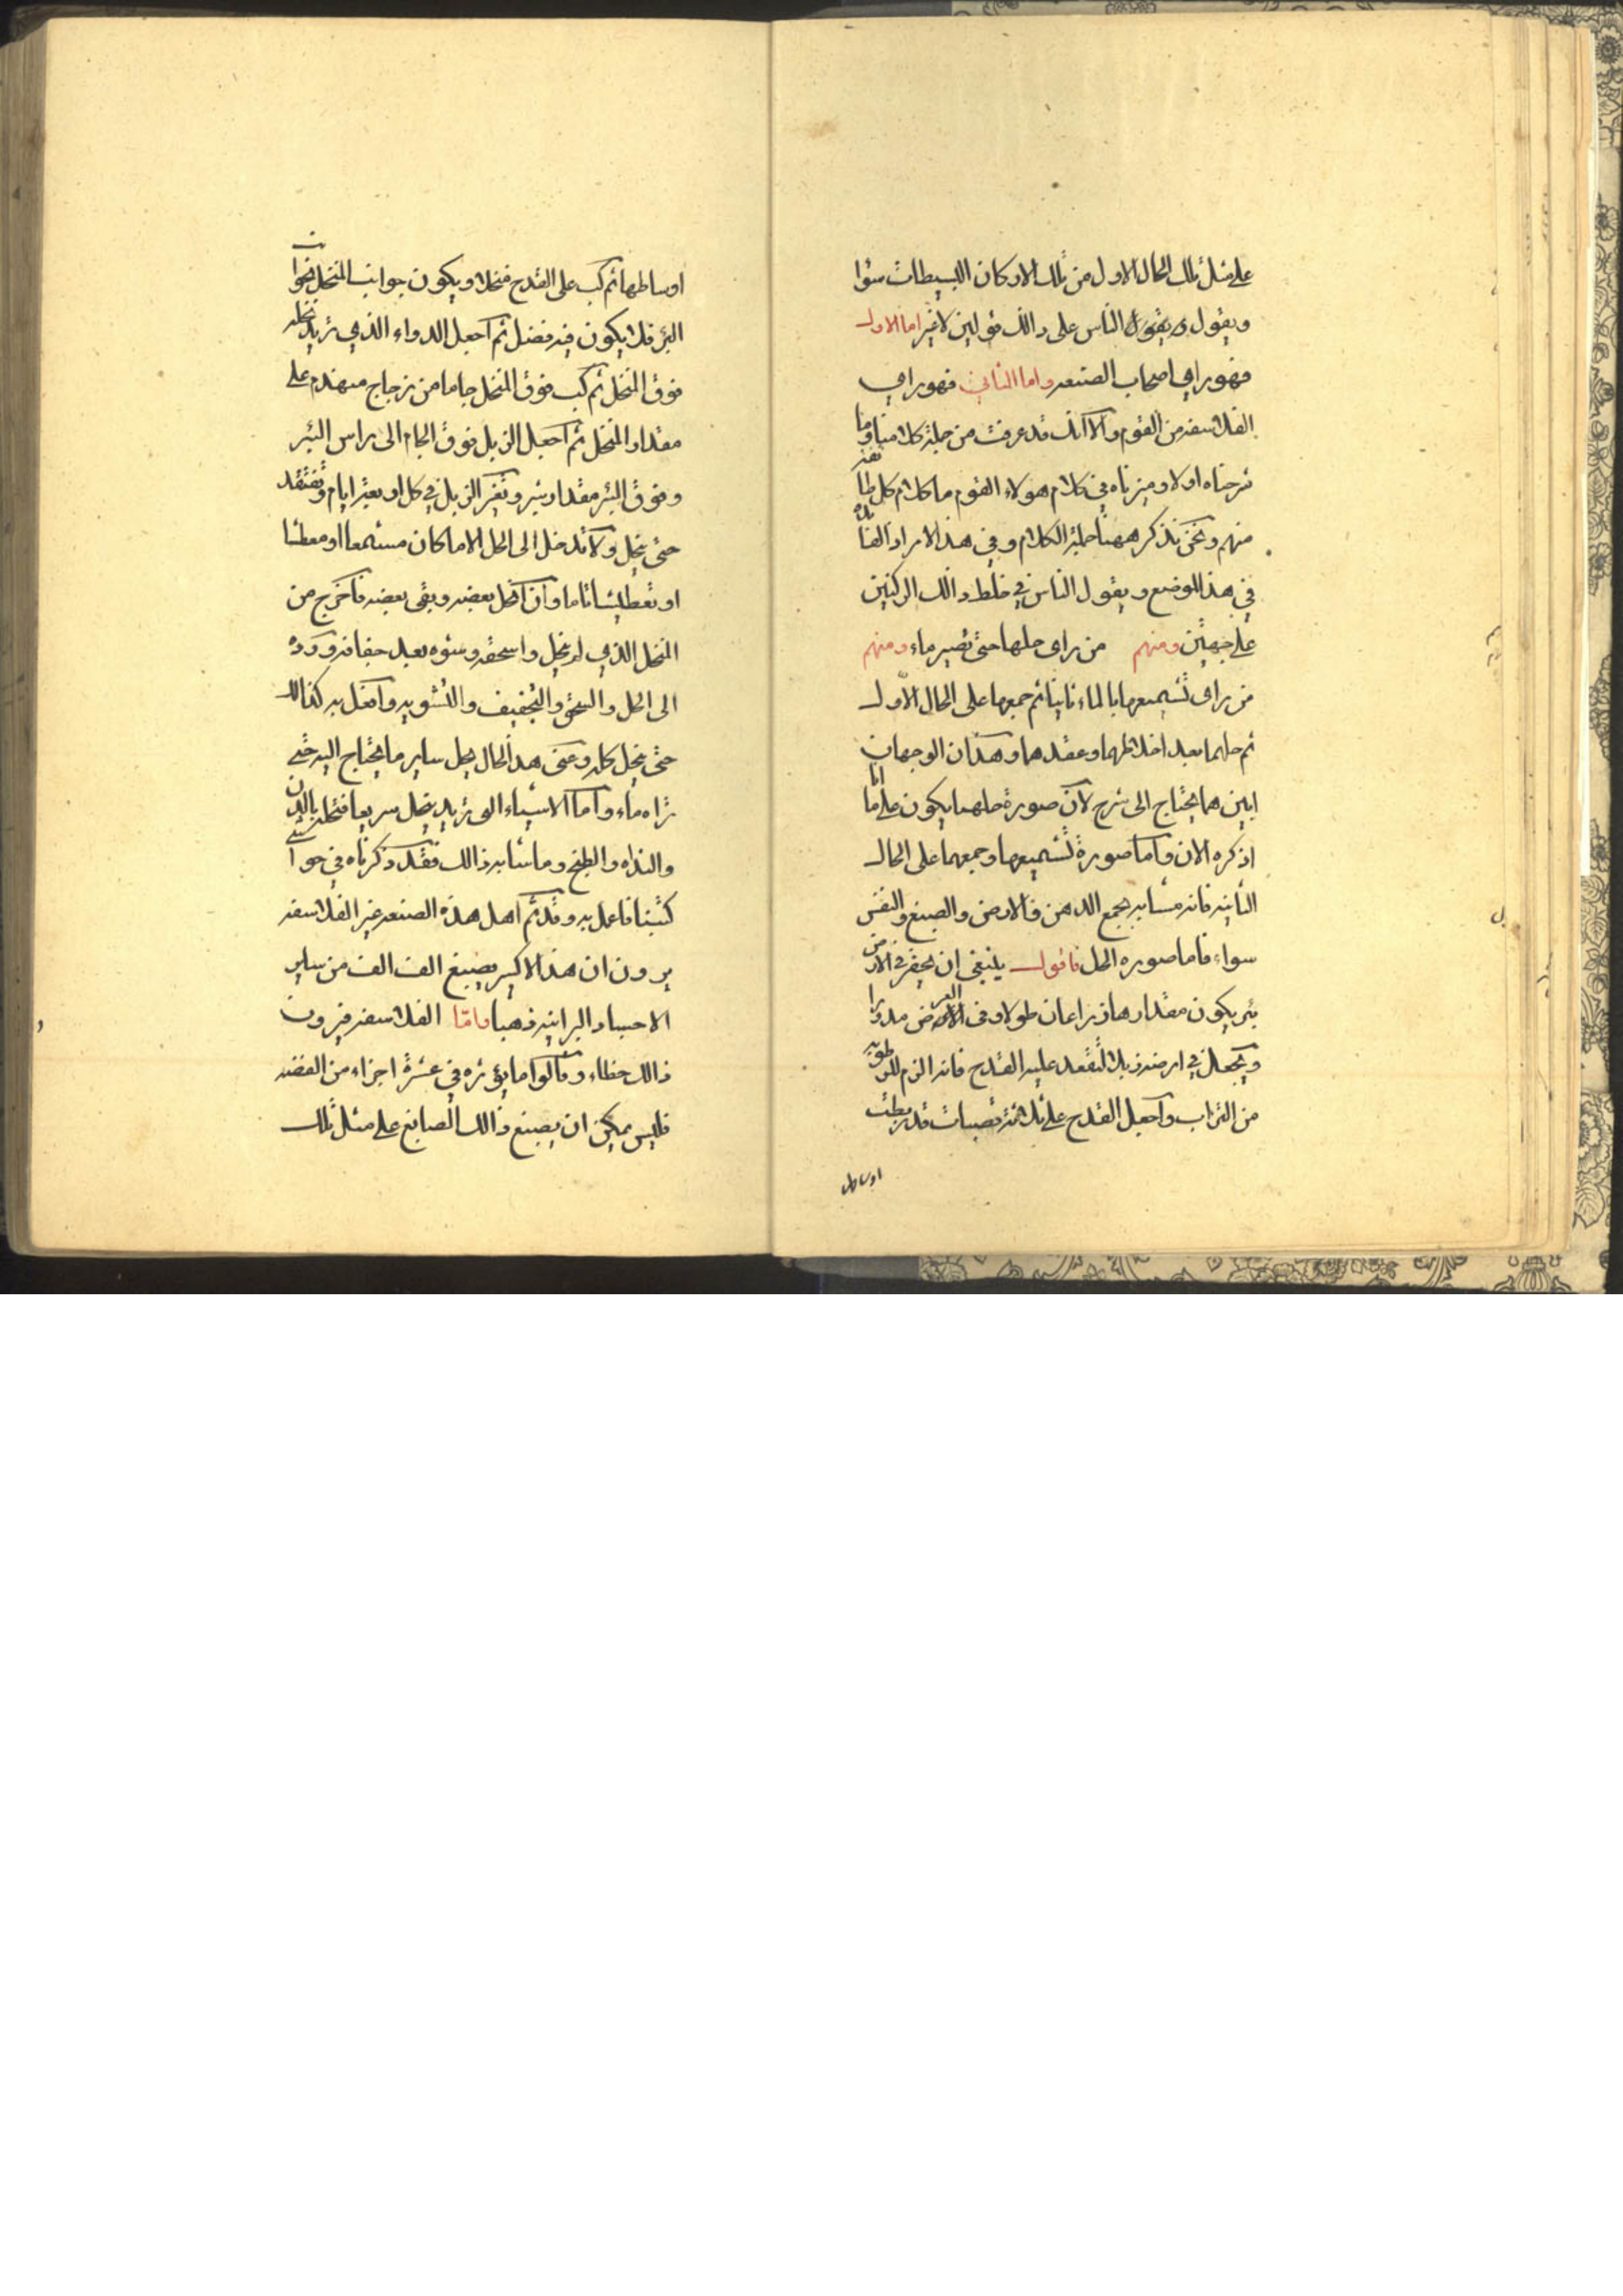 على مثل تلك الحال الاول من تلك الاركان البسيطات سوا
ويقول و يقول الناس على ذالك قولين لاغير اما الاول
فهو راي اصحاب الصنعه واما الثاني فهو راي
الفلاسفه من القوم والا انك قد عرفت من جملة كلامنا وما
شرحناه اولا وميزناه في كلام هولاء القوم ما كلام كل طائفه
منهم ونحن نذكر ههنا جملة الكلام وفي هذا الامر اذ الفائده
في هذا الموضع ويقول الناس في خلط ذالك الركنين
على جهتين ومنهم من راى حلها حتى تصير ماء ومنهم
من راى تشميعها بالماء ثانيا ثم جمعها على الحال الاول
ثم حلهما بعد اختلاطهما وعقدهما وهذان الوجهان
ابين مما يحتاج الى شرح لان صورة حلهما يكون على ما انا
اذكره الان واما صورة تشميعها وجمعهما على الحال
الثانيه فانه مشابه بجمع الدهن فالارض والصبغ والنفس
سواء فاما صوره الحل فاقول ينبغي ان يحفر في الارض
بئر يكون مقدارها ذراعان طولا وفي العرض مدورا
ويجعل في ارضه زبلا لتقعد عليه القدح فانه الزم للرطوبه
من التراب واجعل القدح على ثلاثة قصبات قد ربطت
اوساطها
اوساطها ثم كب على القدح منخلا ويكون جوانب المنخل نحوا من
البئر فلا يكون فيه فضل ثم اجعل الدواء الذي تريد تحله
فوق المنخل ثم كب فوق المنخل جاما من زجاج مهندم على
مقدار المنخل ثم اجعل الزبل فوق الجام الى راس البئر
وفوق البئر مقدار شبر وتغير الزبل في كل اربعة ايام وتفتقد
حتى ينحل ولا تدخل الى الحل الا ما كان مستمعا او معطشا
او تعطيشا تاما وان انحل بعضه وبقى بعضه فاخرج من
المنخل الذي لم ينحل واسحقه وشوه بعد جفافه ورده
الى الحل والسحق والتجفيف والتشويه وافعل به كذالك
حتى ينحل كله وعلى هذ الحال يحل ساير ما يحتاج اليه حتى
تراه ماء واما الاشياء التى تريد ينحل سريعا فتحله بالدن
والنداه والطبخ وما شابه ذالك فقد ذكرناه في حواشي
كتبنا فاعمل به وقد تم اهل هذه الصنعه غير الفلاسفه
يرون ان هذا الاكسير يصبغ الف الف من ساير
الاجساد البرانيه ذهبا فامّا الفلاسفه فيرون
ذالك خطاء وقالوا ما يؤثره في عشرة اجزاء من الفضه
فليس يمكن ان يصبغ ذالك الصابغ على مثل تلك